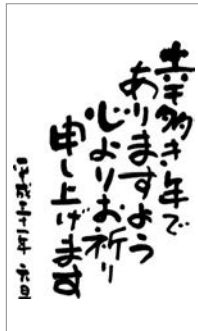 幸多き年で
ありますよう
心よりお祈り
申し上げます
平成三十一年 元旦